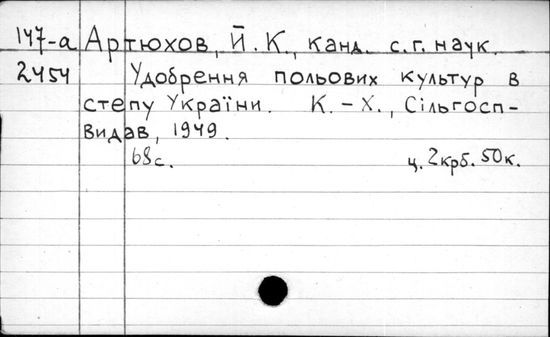 147-а Артюхов, Й.К., канд. с.г. наук.
2454 Удобрення польових культур в
степу України. К.-Х., Сільгосп-
видав, 1949.
68с. ц. 2крб. 50к.